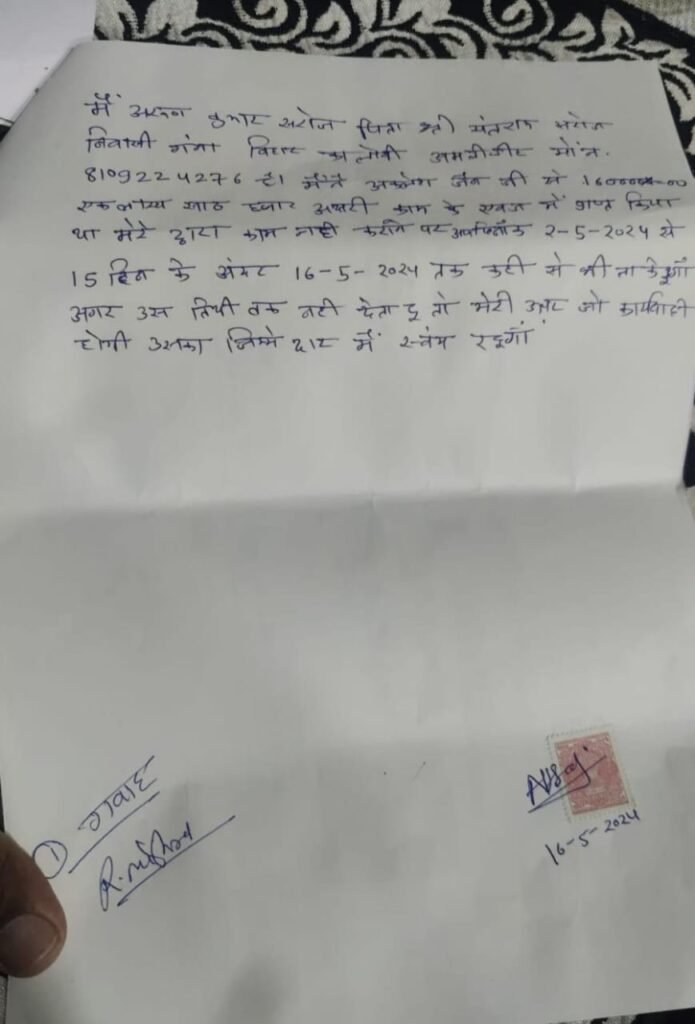 मैं अरुण कुमार सरोज पिता श्री संतराम सरोज
निवासी गंगा विहार कालोनी मो.न.
8109224276 है। मैंने जैन जी से
एक लाख साठ हजार काम के एवज में प्राप्त किया
था मेरे द्वारा काम नही करने पर 2-5-2024 से
15 दिन के अंदर 16-5-2024 तक कही से भी ला के दूगाँ
अगर उस तिथी तक नही देता हू तो मेरी उपर जो कार्यवाही
होगी उसका जिम्मेदार मैं स्वंय रहूगाँ
① गवाह
R. Mishra
16-5-2024